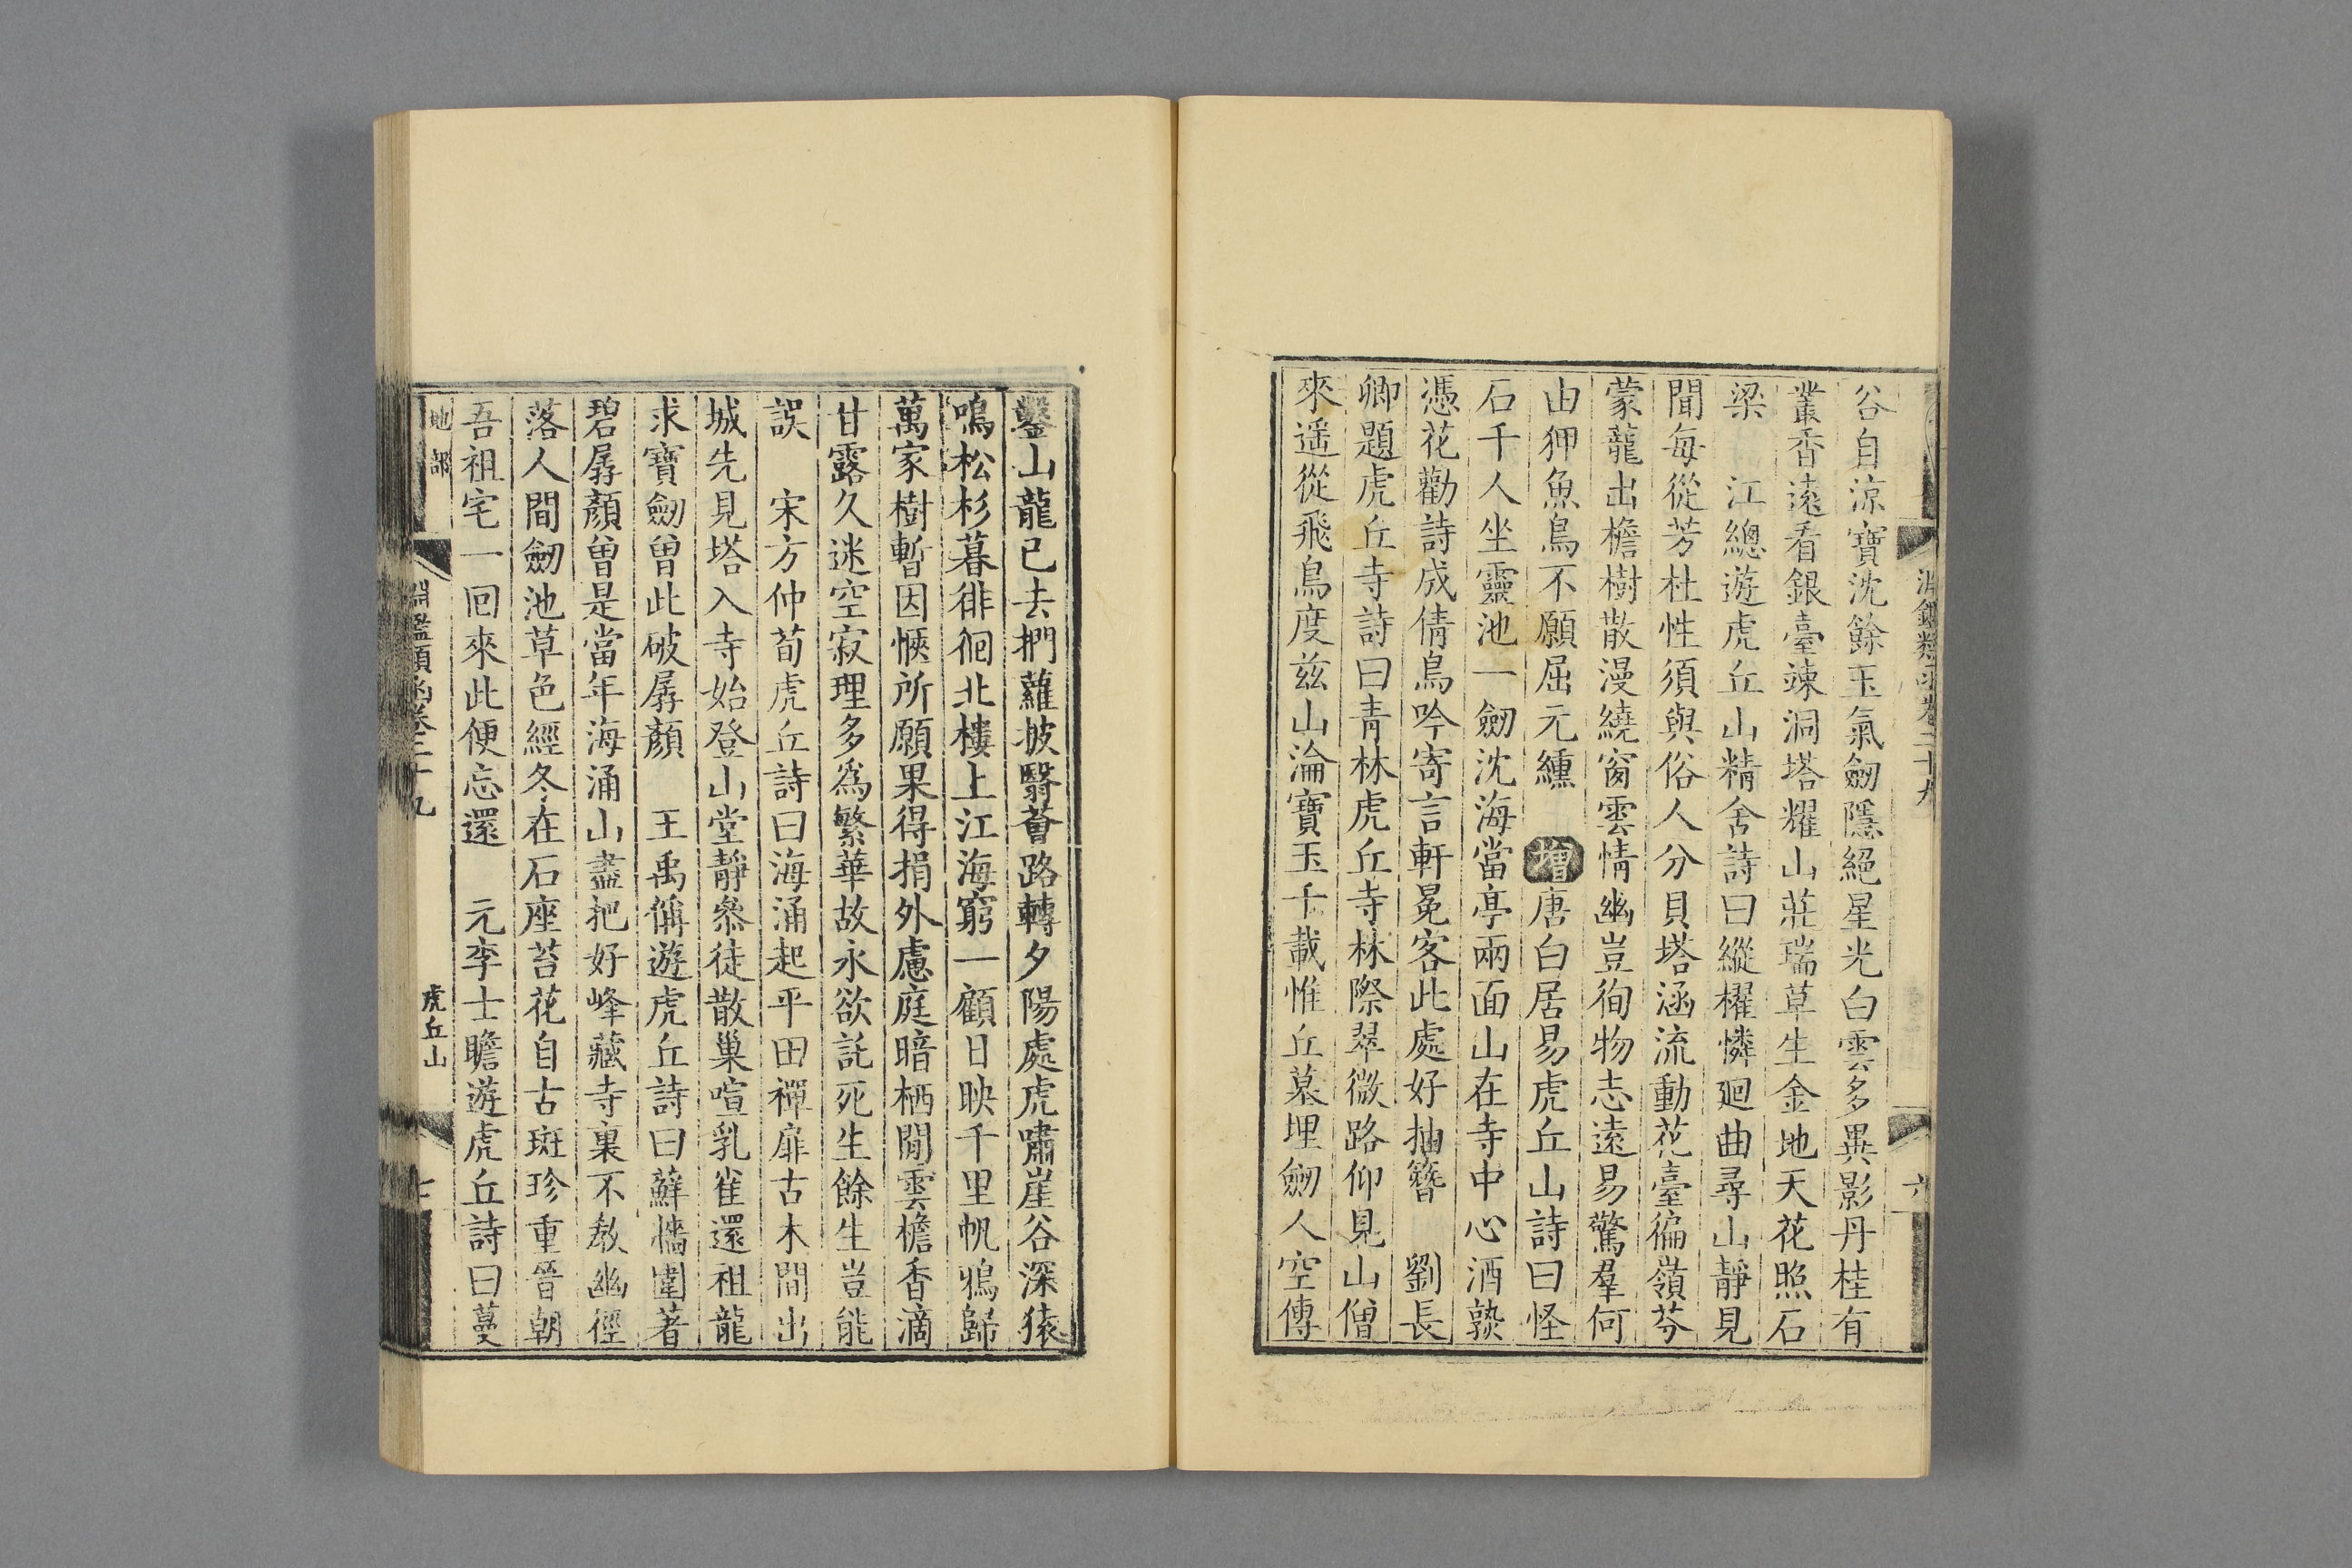 谷自涼寶沈餘玉氣劒隱絕星光白雲多異影丹桂有
叢香遠看銀臺竦洞塔耀山莊瑞草生金地天花照石
梁　江總遊虎丘山精舍詩曰縱櫂憐廻曲尋山靜見
聞每從芳杜性須與俗人分貝塔涵流動花臺徧嶺芬
蒙蘢出檐樹散漫繞窗雲情幽豈徇物志遠易驚羣何
由狎魚鳥不願屈元纁　增唐白居易虎丘山詩曰怪
石千人坐靈池一劒沈海當亭兩面山在寺中心酒熟
憑花勸詩成倩鳥吟寄言軒冕客此處好抽簪　劉長
卿題虎丘寺詩曰青林虎丘寺林際翠微路仰見山僧
來遥從飛鳥度兹山淪寶玉千載惟丘墓埋劒人空傳
淵鑑類函卷三十九
六
鑿山龍已去捫蘿披翳薈路轉夕陽處虎嘯崖谷深猿
鳴松杉暮徘徊北樓上江海窮一顧日映千里帆鴉歸
萬家樹暫因愜所願果得捐外慮庭暗栖閒雲檐香滴
甘露久迷空寂理多爲繁華故永欲託死生餘生豈能
誤　宋方仲荀虎丘詩曰海涌起平田禪扉古木間出
城先見塔入寺始登山堂靜叅徒散巢喧乳雀還祖龍
求寶劒曾此破孱顏　王禹偁遊虎丘詩曰蘚牆圍著
碧孱顏曾是當年海涌山盡把好峰藏寺裏不敎幽徑
落人間劒池草色經冬在石座苔花自古斑珍重晉朝
吾祖宅一回來此便忘還　元李士瞻遊虎丘詩曰蔓
地部
淵鑑類函卷三十九
虎丘山
七